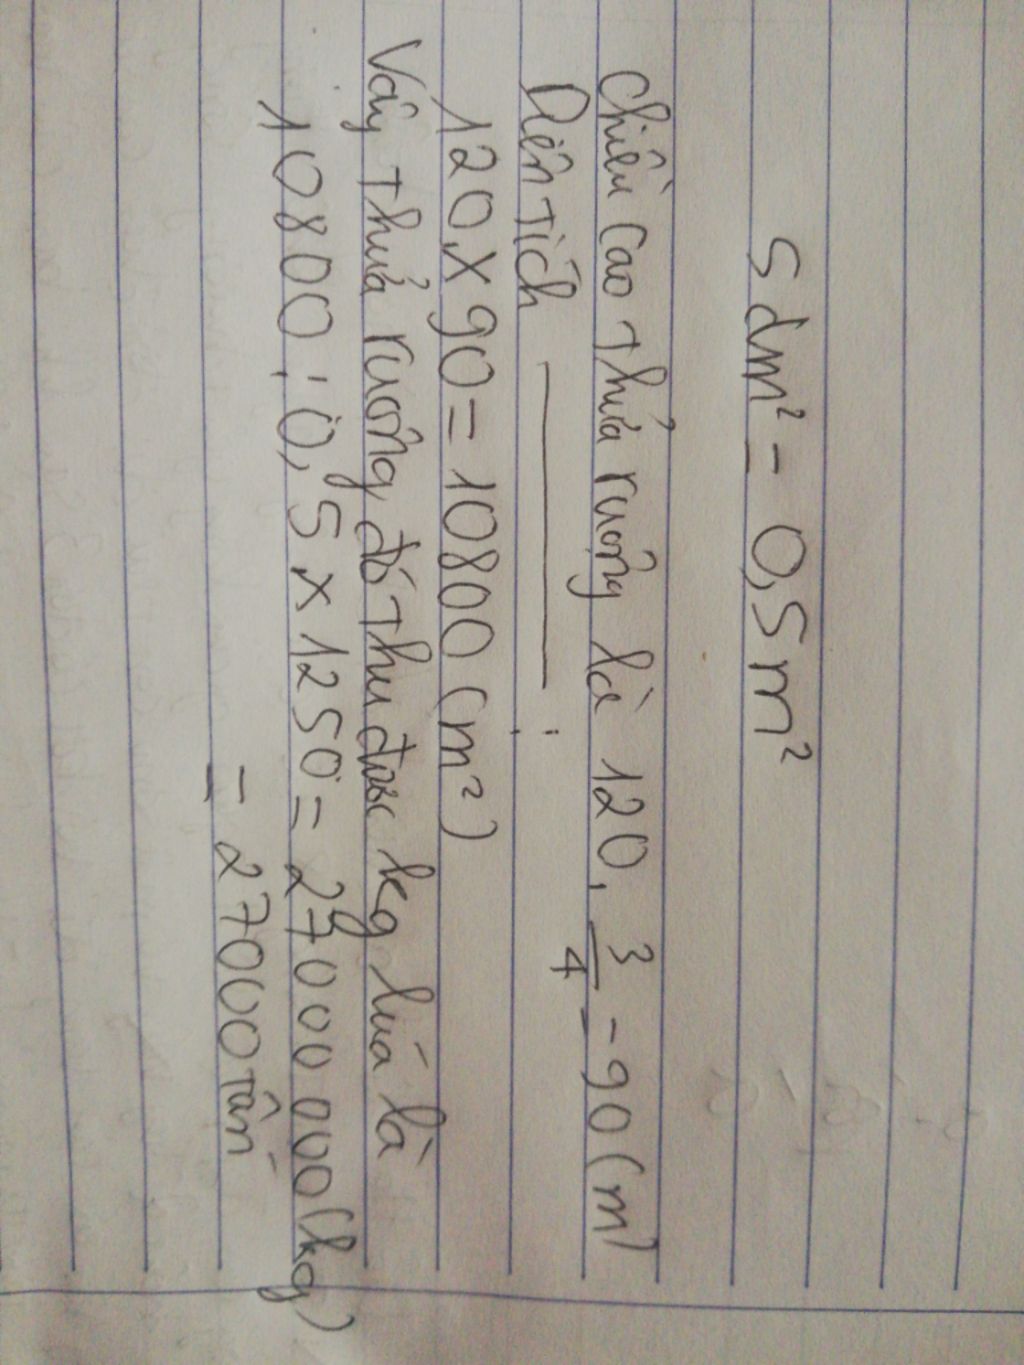 5 dm² = 0,5 m²
Chiều cao thửa ruộng là 120. 3/4 = 90 (m)
Diện tích ———— :
120 x 90 = 10800 (m²)
Vậy thửa ruộng đó thu được kg lúa là
10800 : 0,5 x 1250 = 27000 000 (kg)
= 27000 tấn